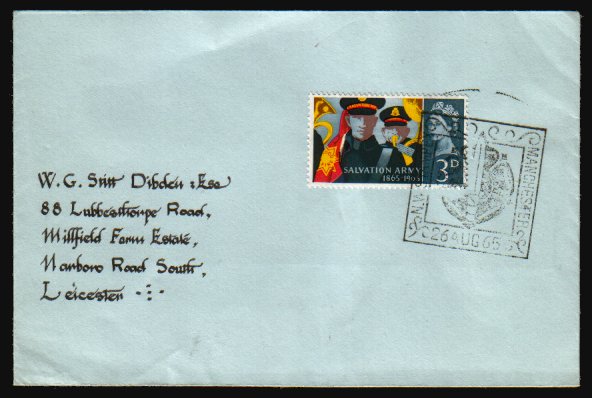 SALVATION ARMY
1865-1965
3D
MANCHESTER
26 AUG 65
W. G. Stitt Dibden : Esq
88 Lubbesthorpe Road,
Millfield Farm Estate,
Narboro Road South,
Leicester